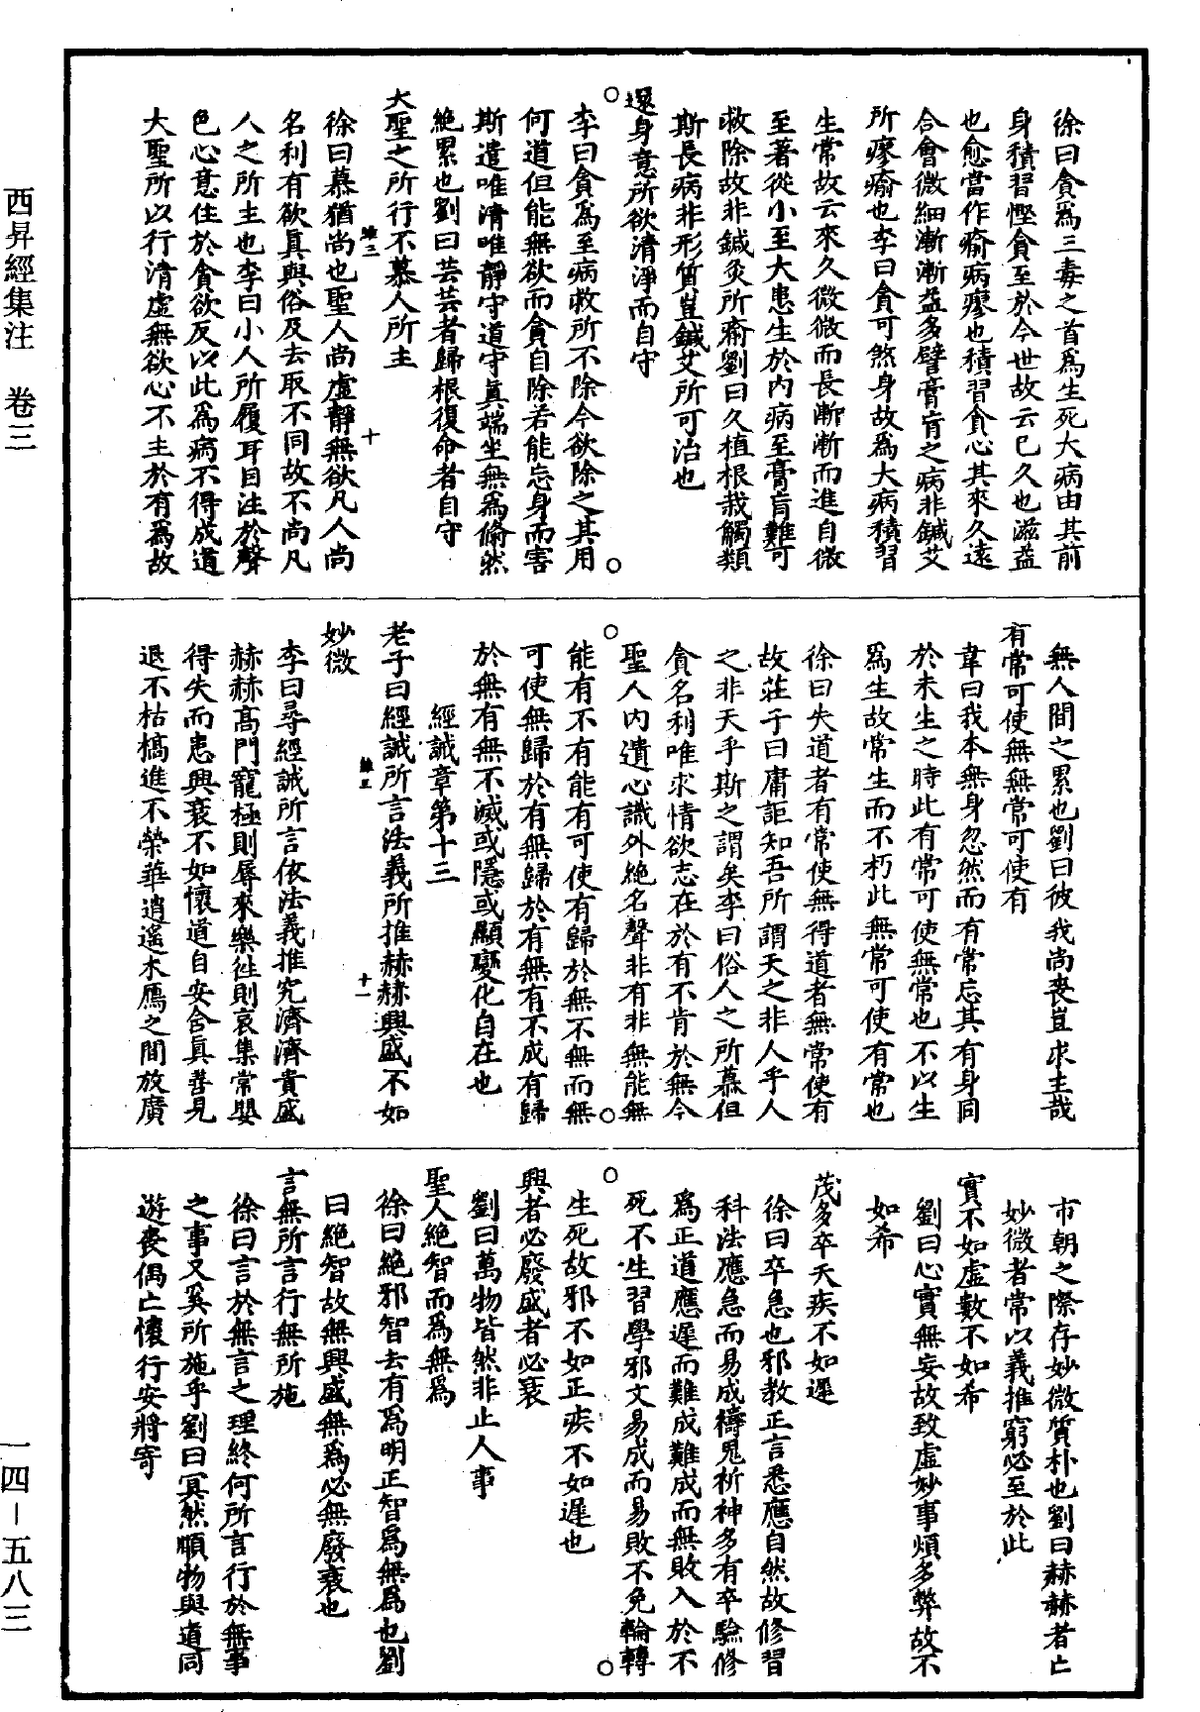 西昇經集注 卷三
一四－五八三
徐曰貪爲三毒之首爲生死大病由其前
身積習慳貪至於今世故云已久也滋益
也愈當作瘉病瘳也積習貪心其來久遠
合會微細漸漸益多譬膏肓之病非鍼艾
所瘳瘉也李曰貪可煞身故爲大病積習
生常故云來久微微而長漸漸而進自微
至著從小至大患生於內病至膏肓難可
救除故非鍼灸所瘉劉曰久植根栽觸類
斯長病非形質豈鍼艾所可治也
還身意所欲清淨而自守
李曰貪爲至病救所不除今欲除之其用
何道但能無欲而貪自除若能忘身而害
斯遣唯清唯靜守道守真端坐無爲翛然
絕累也劉曰芸芸者歸根復命者自守
大聖之所行不慕人所主
徐曰慕猶尚也聖人尚虛靜無欲凡人尚
名利有欲真與俗及去取不同故不尚凡
人之所主也李曰小人所履耳目注於聲
色心意住於貪欲反以此爲病不得成道
大聖所以行清虛無欲心不主於有爲故
無人間之累也劉曰彼我尚喪豈求主哉
有常可使無無常可使有
韋曰我本無身忽然而有常忘其有身同
於未生之時此有常可使無常也不以生
爲生故常生而不朽此無常可使有常也
徐曰失道者有常使無得道者無常使有
故莊子曰庸詎知吾所謂天之非人乎人
之非天乎斯之謂矣李曰俗人之所慕但
貪名利唯求情欲志在於有不肯於無今
聖人內遺心識外絕名聲非有非無能無
能有不有能有可使有歸於無不無而無
可使無歸於有無歸於有無有不成有歸
於無有無不滅或隱或顯變化自在也
經誡章第十三
老子曰經誡所言法義所推赫赫興盛不如
妙微
李曰尋經誡所言依法義推究濟濟貴盛
赫赫高門寵極則辱來樂徃則哀集常嬰
得失而患興衰不如懷道自安含真善見
退不枯槁進不榮華逍遙木鴈之間放廣
市朝之際存妙微質朴也劉曰赫赫者亡
妙微者常以義推窮必至於此
實不如虛數不如希
劉曰心實無妄故致虛妙事煩多弊故不
如希
茂多卒夭疾不如遲
徐曰卒急也邪教正言悉應自然故修習
科法應急而易成禱鬼祈神多有卒驗修
爲正道應遲而難成難成而無敗入於不
死不生習學邪文易成而易敗不免輪轉
生死故邪不如正疾不如遲也
興者必廢盛者必衰
劉曰萬物皆然非止人事
聖人絕智而爲無爲
徐曰絕邪智去有爲明正智爲無爲也劉
曰絕智故無興盛無爲必無廢衰也
言無所言行無所施
徐曰言於無言之理終何所言行於無事
之事又奚所施乎劉曰冥然順物與道同
遊喪偶亡懷行安將寄